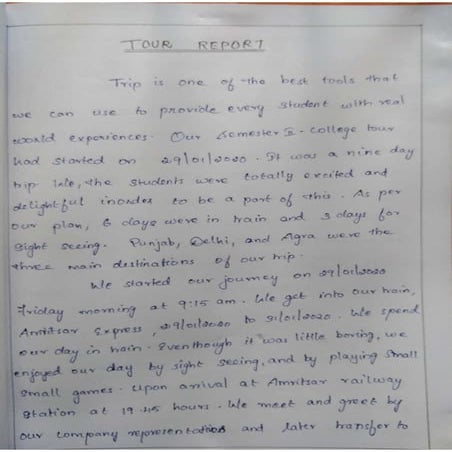 TOUR REPORT
Trip is one of the best tools that
we can use to provide every student with real
world experiences. Our Semester II - college tour
had started on 29/01/2020. It was a nine day
trip. We, the students were totally excited and
delightful inorder to be a part of this. As per
our plan, 6 days were in train and 3 days for
sight seeing. Punjab, Delhi, and Agra were the
three main destinations of our trip.
We started our journey on 29/01/2020
Friday morning at 9:15 am. We get into our train,
Amritsar Express, 29/01/2020 to 31/01/2020. We spend
our day in train. Eventhough it was little boring, we
enjoyed our day by sight seeing, and by playing small
small games. Upon arrival at Amritsar railway
station at 19.45 hours. We meet and greet by
our company representatives and later transfer to